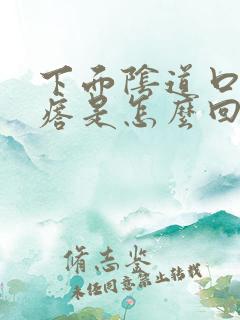 下面陰道口
痞是怎麼回
脩志鉴
未经同意禁止转载